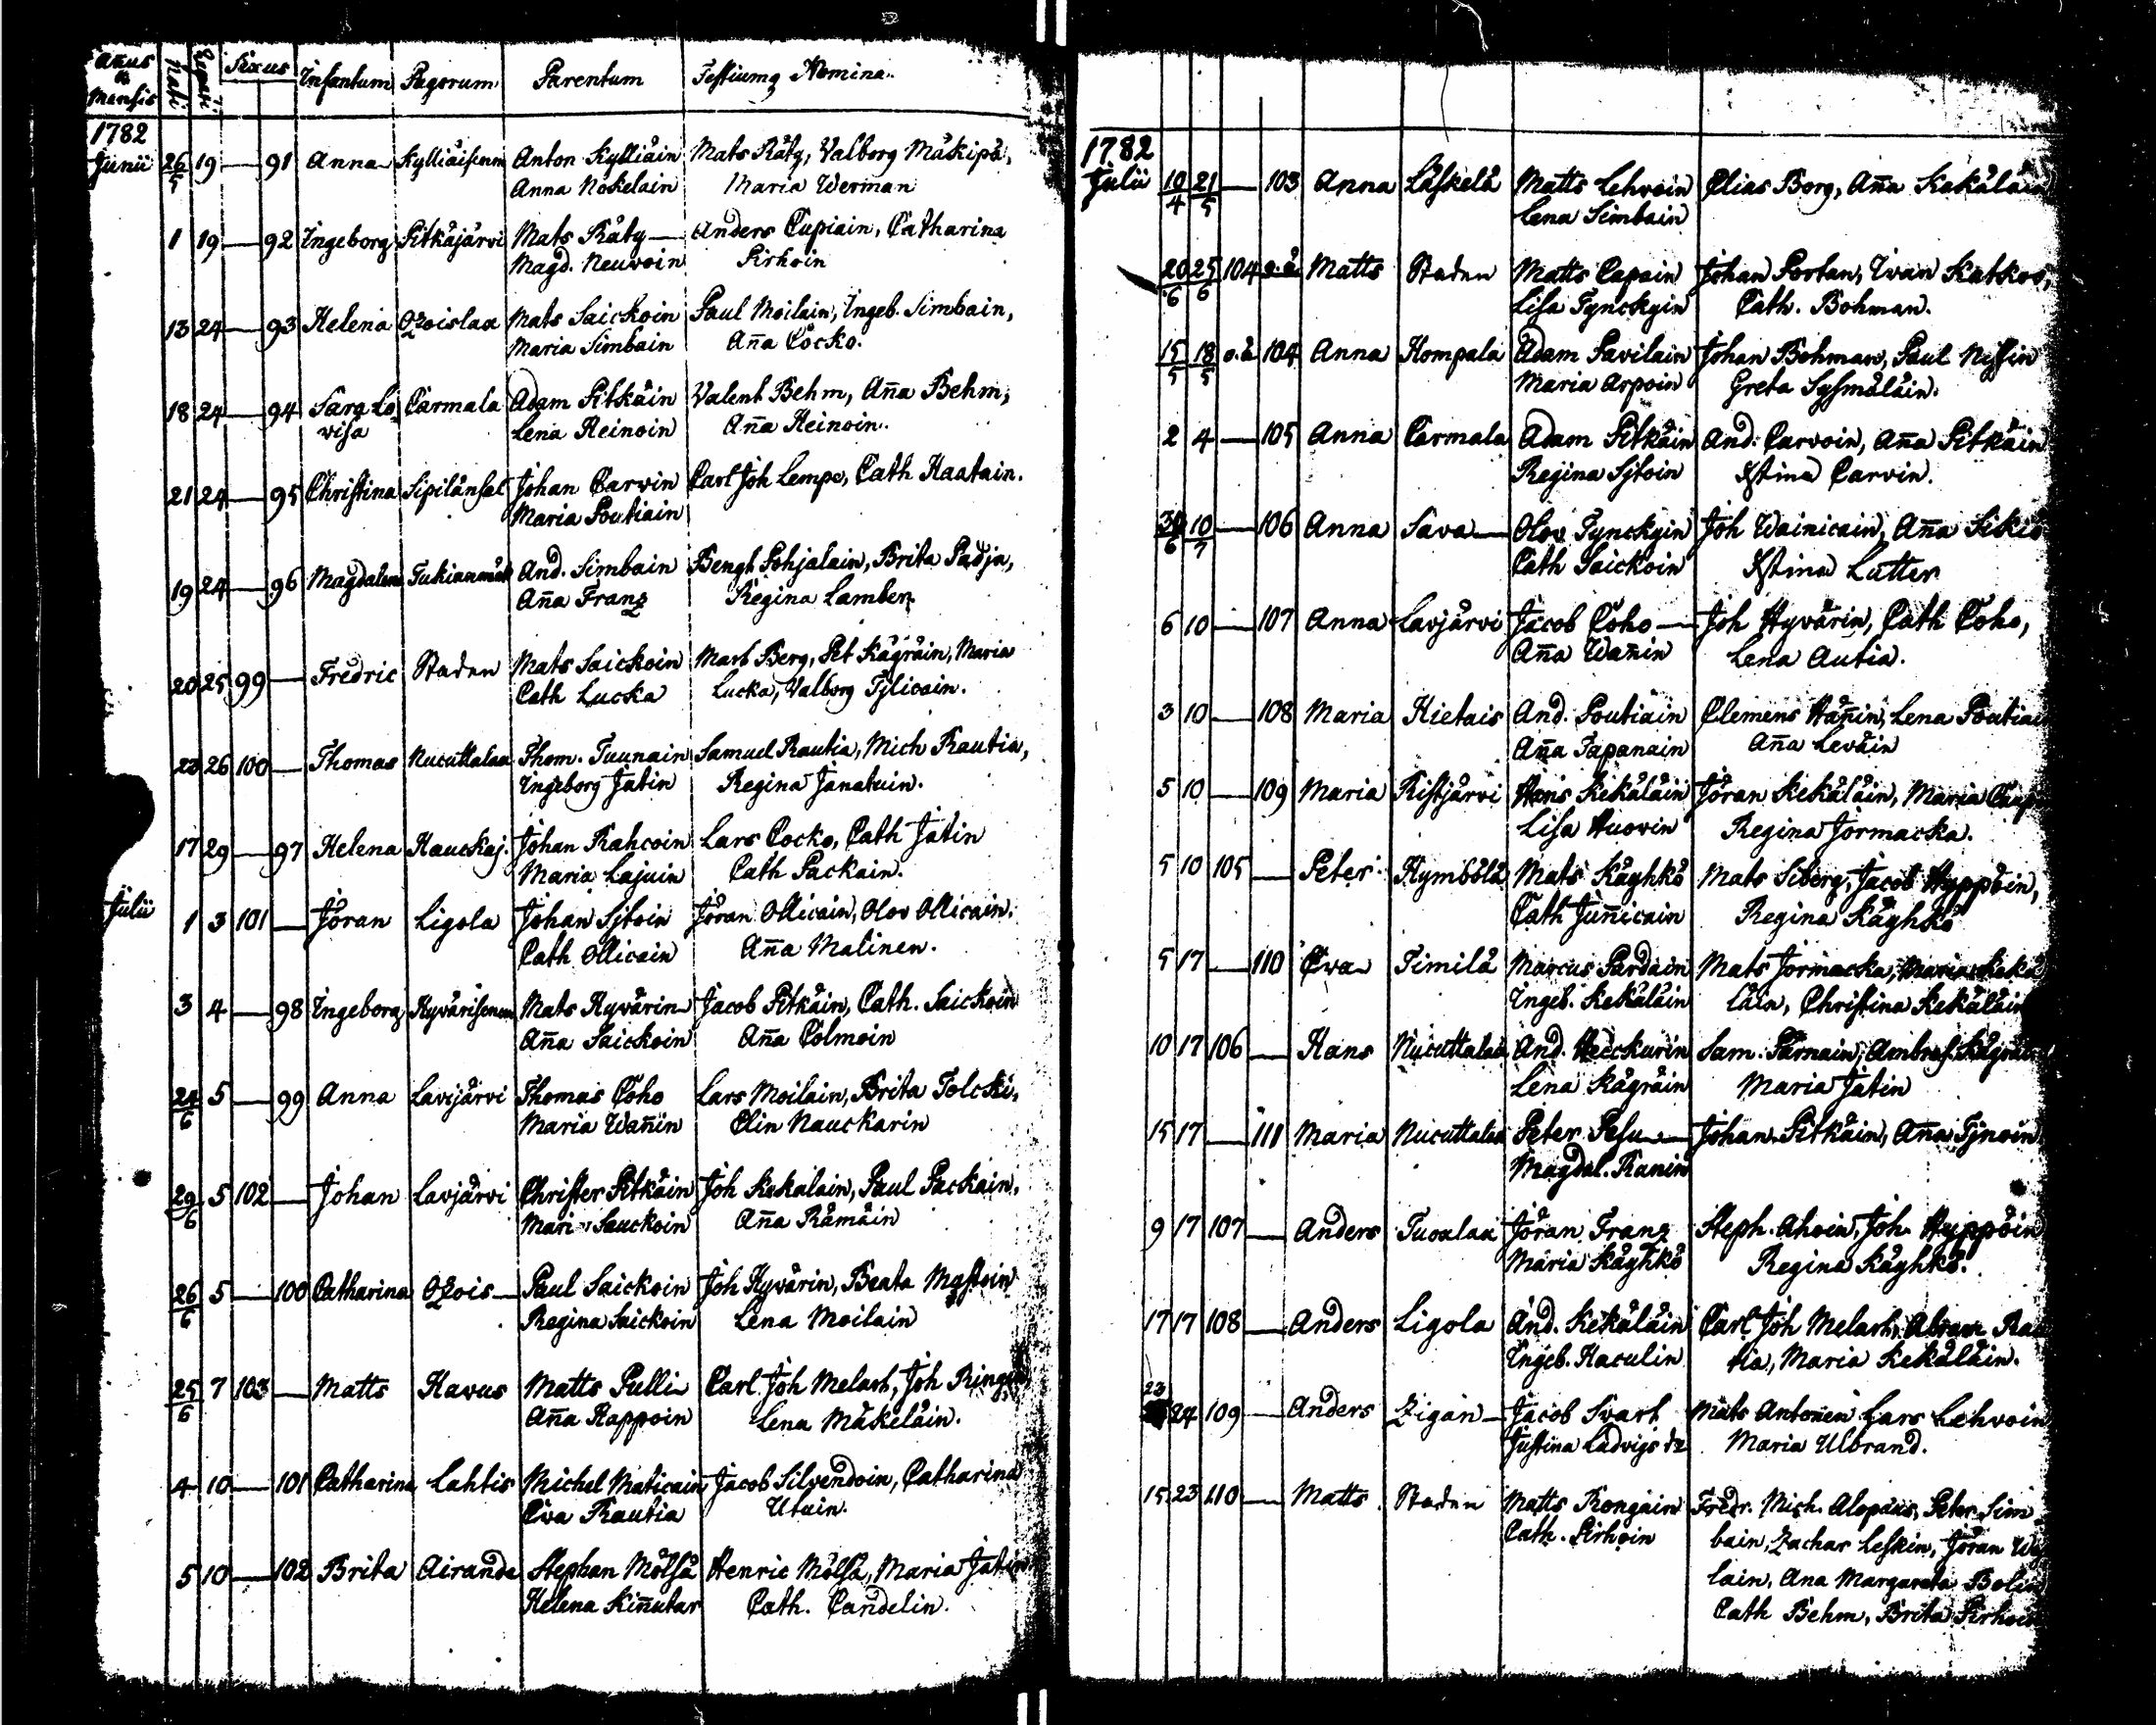 Añus & Mensis Nati Renati Sexus Infantum Pagorum Parentum Testiumq Nomina.
1782
Junii 26/5 19 — 91 Anna Kylliäisenm Anton Kylliäin Mats Räty, Valborg Mäkipä,
Anna Nokelain Maria Werman
1 19 — 92 Ingeborg Pitkäjärvi Mats Räty — Anders Cupiain, Catharina
Magd. Neuvoin Pirhoin
13 24 — 93 Helena Ozoislax Mats Saickoin Paul Moilain, Ingeb. Simbain,
Maria Simbain Aña Cocko.
18 24 — 94 Sara Lo Carmala Adam Pitkäin Valent Behm, Aña Behm,
visa Lena Heinoin Aña Heinoin.
21 24 — 95 Christina Sipilänsal Johan Carvin Carl Joh Lempo, Cath Haatain.
Maria Poutiain
19 24 — 96 Magdalena Tukianmäk And. Simbain Bengt Pohjalain, Brita Padja,
Aña Franz Regina Lamber
20 25 99 — Fredric Staden Mats Saickoin Mart Berg, Pet Kägräin, Maria
Cath Lucka Lucka, Valborg Tylicain.
23 26 100 — Thomas Nucuttalax Thom. Tuunain Samuel Rautia, Mich Rautia,
Ingeborg Jatin Regina Janatuin.
17 29 — 97 Helena Hauckaj. Johan Rahcoin Lars Cocko, Cath Jatin
Maria Lajuin Cath Packain.
Julii 1 3 101 — Jöran Ligola Johan Sjtoin Jöran Ollicain, Olov Ollicain.
Cath Ollicain Aña Malinen.
3 4 — 98 Ingeborg Hyvärisenm Mats Hyvärin Jacob Pitkäin, Cath. Saickoin
Aña Saickoin Aña Colmoin
24/6 5 — 99 Anna Lavijärvi Thomas Coho Lars Moilain, Brita Tolcki,
Maria Wañin Elin Nauckarin
29/6 5 102 — Johan Lavjärvi Christer Pitkäin Joh Kekalain, Paul Packain,
Mari Sauckoin Aña Rämäin
26/6 5 — 100 Catharina Ozois — Paul Saickoin Joh Hyvärin, Beata Mustoin
Regina Saickoin Lena Moilain
25/6 7 103 — Matts Havus Matts Pulli Carl Joh Melart, Joh
Aña Rappoin Lena Mäkeläin.
4 10 — 101 Catharina Lahtis Michel Maticain Jacob Silvendoin, Catharina
Eva Rautia Utuin.
5 10 — 102 Brita Airanda Stephan Mölsä Henric Mölsä, Maria Jatin
Helena Kiñutar Cath. Candelin.
1782
Julii 10/4 21/5 — 103 Anna Läskelä Matts Lehvoin Elias Borg, Aña Kekäläin
Lena Simbain
20/6 25/6 104 o.ä. Matts Staden Matts Capain Johan Portan, Iwan Katkov,
Lisa Tynckyin Cath. Bohman.
15/5 18/5 o.ä 104 Anna Kompala Adam Savilain Johan Bohman, Paul Nissin
Maria Arpoin Greta Sysmäläin.
2 4 — 105 Anna Carmala Adam Pitkäin And. Carvoin, Aña Pitkäin
Regina Sjtoin Xstina Carvin.
30/6 10/7 — 106 Anna Sava — Olov Tynckyin Joh Wainicain, Aña
Cath Saickoin Xstina Lutter
6 10 — 107 Anna Lavjärvi Jacob Coho — Joh Hyvärin, Cath Coho,
Aña Wañin Lena Autia.
3 10 — 108 Maria Hietais And. Poutiain Clemens Häñin, Lena Poutiai
Aña Tapanain Aña Leväin
5 10 — 109 Maria Ristjärvi Hans Kekäläin Jöran Kekäläin, Maria
Lisa Huovin Regina Jormacka.
5 10 105 — Peter Kymbölä Mats Käyhkö Mats Siberg, Jacob Hyppöin,
Cath Juñicain Regina Käyhkö
5 17 — 110 Eva Timilä Marcus Pardain Mats Jormacka, Maria Kekä
Ingeb. Kekäläin läin, Christina Kekäläin
10 17 106 — Hans Nucuttalax And. Heickurin Sam. Pärnain, Ambros. Kägräin
Lena Kägräin Maria Jatin
15 17 — 111 Maria Nucuttalax Peter Pesu — Johan Pitkäin, Aña Tjnoin
Magdal. Ranin
9 17 107 — Anders Tuoslax Jöran Franz Steph. Ahoin, Joh Hyppöin
Maria Käyhkö Regina Käyhkö.
17 17 108 — Anders Ligola And. Kekäläin Carl Joh Melart, Abram Rau
Ingeb. Haculin tia, Maria Kekäläin.
23 24 109 — Anders Zigan — Jacob Svart Mats Antonen Lars Lehvoin
Justina Ladvigs dr Maria Ulbrand.
15 23 110 — Matts Staden Matts Rongain Fredr. Mich. Alopæus, Peter Sim
Cath. Pirhoin bain, Zachar Leskin, Jöran
lain, Ana Margareta Bolin
Cath Behm, Brita Pirhoin